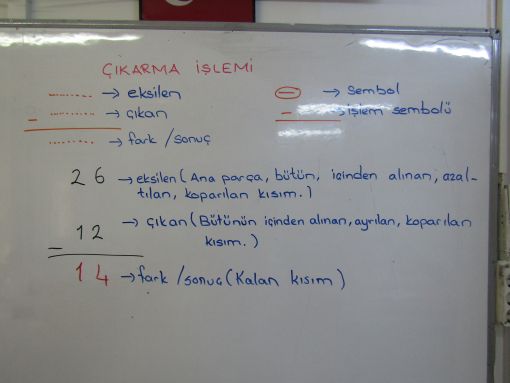 ÇIKARMA İŞLEMİ
.......... → eksilen
- .......... → çıkan
.......... → fark / sonuç
⊖ → sembol
- → işlem sembolü
26 → eksilen (Ana parça, bütün, içinden alınan, azal-
tılan, koparılan kısım.)
- 12 → çıkan (Bütünün içinden alınan, ayrılan, koparılan
kısım.)
14 → fark / sonuç (Kalan kısım)